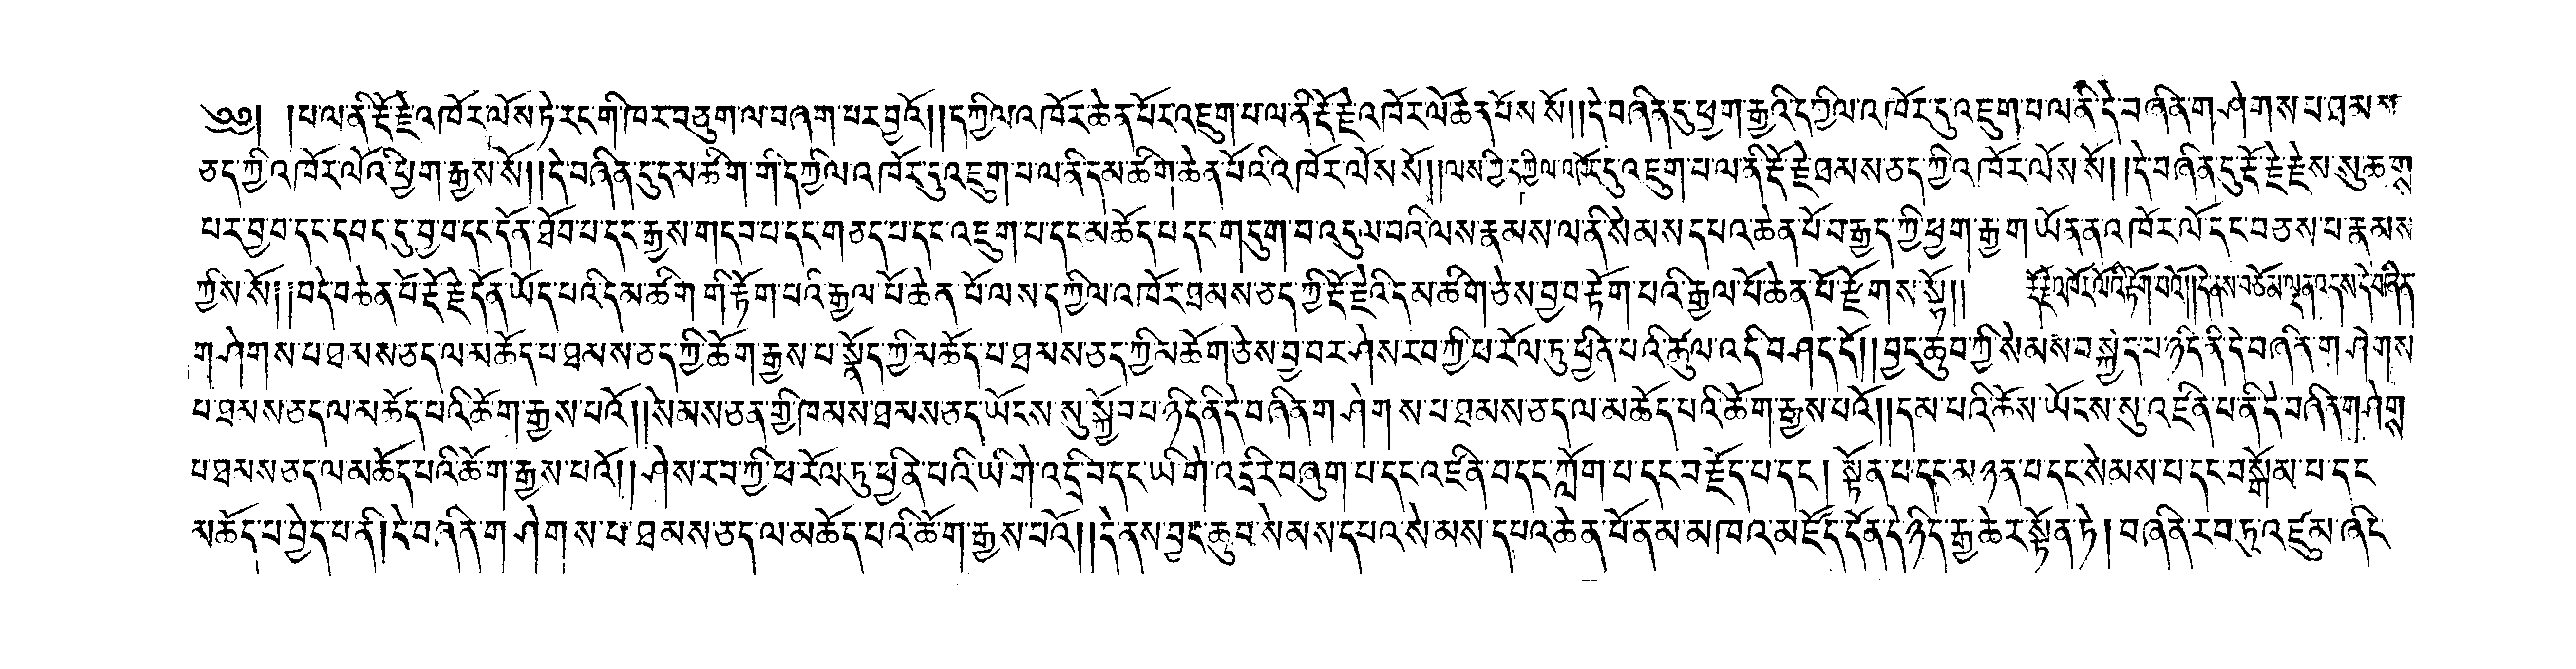 ༄༅། །པ་ལ་ནི་རྡོ་རྗེ་འཁོར་ལོས་ཏེ་རང་གི་ཁར་བཅུག་ལ་བཞག་པར་བྱའོ།།དཀྱིལ་འཁོར་ཆེན་པོར་འཇུག་པ་ལ་ནི་རྡོ་རྗེ་འཁོར་ལོ་ཆེན་པོས་སོ།།དེ་བཞིན་དུ་ཕྱག་རྒྱའི་དཀྱིལ་འཁོར་དུ་འཇུག་པ་ལ་ནི་དེ་བཞིན་གཤེགས་པ་ཐམས་
ཅད་ཀྱི་འཁོར་ལོའི་ཕྱག་རྒྱས་སོ།།དེ་བཞིན་དུ་དམ་ཚིག་གི་དཀྱིལ་འཁོར་དུ་འཇུག་པ་ལ་ནི་དམ་ཚིག་ཆེན་པོའི་འཁོར་ལོས་སོ།།ལས་ཀྱི་དཀྱིལ་འཁོར་དུ་འཇུག་པ་ལ་ནི་རྡོ་རྗེ་ཐམས་ཅད་ཀྱི་འཁོར་ལོས་སོ།།དེ་བཞིན་དུ་རྡོ་རྗེ་རྗེས་སུ་ཆགས
པར་བྱ་བ་དང་དབང་དུ་བྱ་བ་དང་དོན་ཐོབ་པ་དང་རྒྱས་གདབ་པ་དང་གཅད་པ་དང་འཇུག་པ་དང་མཆོད་པ་དང་གདུག་པ་འདུལ་བའི་ལས་རྣམས་ལ་ནི་སེམས་དཔའ་ཆེན་པོ་བརྒྱད་ཀྱི་ཕྱག་རྒྱ་ག་ཡོན་ན་འཁོར་ལོ་དང་བཅས་པ་རྣམས་
ཀྱིས་སོ།།བདེ་བ་ཆེན་པོ་རྡོ་རྗེ་དོན་ཡོད་པའི་དམ་ཚིག་གི་རྟོག་པའི་རྒྱལ་པོ་ཆེན་པོ་ལས་དཀྱིལ་འཁོར་ཐམས་ཅད་ཀྱི་རྡོ་རྗེའི་དམ་ཚིག་ཅེས་བྱ་བ་རྟོག་པའི་རྒྱལ་པོ་ཆེན་པོ་རྫོགས་སྷོ།། རྡོ་རྗེ་འཁོར་ལོའི་རྟོག་པའོ།།དེ་ནས་བཅོམ་ལྡན་འདས་དེ་བཞིན་
གཤེགས་པ་ཐམས་ཅད་ལ་མཆོད་པ་ཐམས་ཅད་ཀྱི་ཆོ་ག་རྒྱས་པ་སྣོད་ཀྱི་མཆོད་པ་ཐམས་ཅད་ཀྱི་མཆོག་ཅེས་བྱ་བར་ཤེས་རབ་ཀྱི་ཕ་རོལ་ཏུ་ཕྱིན་པའི་ཚུལ་འདི་བཤད་དོ།།བྱང་ཆུབ་ཀྱི་སེམས་བསྐྱེད་པ་ཉིད་ནི་དེ་བཞིན་གཤེགས་
པ་ཐམས་ཅད་ལ་མཆོད་པའི་ཆོ་ག་རྒྱས་པའོ།།སེམས་ཅན་གྱི་ཁམས་ཐམས་ཅད་ཡོངས་སུ་སྐྱོབ་པ་ཉིད་ནི་དེ་བཞིན་གཤེགས་པ་ཐམས་ཅད་ལ་མཆོད་པའི་ཆོ་ག་རྒྱས་པའོ།།དམ་པའི་ཆོས་ཡོངས་སུ་འཛིན་པ་ནི་དེ་བཞིན་གཤེགས
པ་ཐམས་ཅད་ལ་མཆོད་པའི་ཆོ་ག་རྒྱས་པའོ།།ཤེས་རབ་ཀྱི་ཕ་རོལ་ཏུ་ཕྱིན་པའི་ཡི་གེ་འདྲི་བ་དང་ཡི་གེ་འདྲིར་བཞུག་པ་དང་འཛིན་བ་དང་ཀློག་པ་དང་བརྗོད་པ་དང་། སྟོན་པ་དང་མཉན་པ་དང་སེམས་པ་དང་བསྒོམ་པ་དང་
མཆོད་པ་བྱེད་པ་ནི།དེ་བཞིན་གཤེགས་པ་ཐམས་ཅད་ལ་མཆོད་པའི་ཆོ་ག་རྒྱས་པའོ།།དེ་ནས་བྱང་ཆུབ་སེམས་དཔའ་སེམས་དཔའ་ཆེན་པོ་ནམ་མཁའ་མཛོད་དོན་དེ་ཉིད་རྒྱ་ཆེར་སྟོན་ཏེ།བཞིན་རབ་ཏུ་འཛུམ་ཞིང་